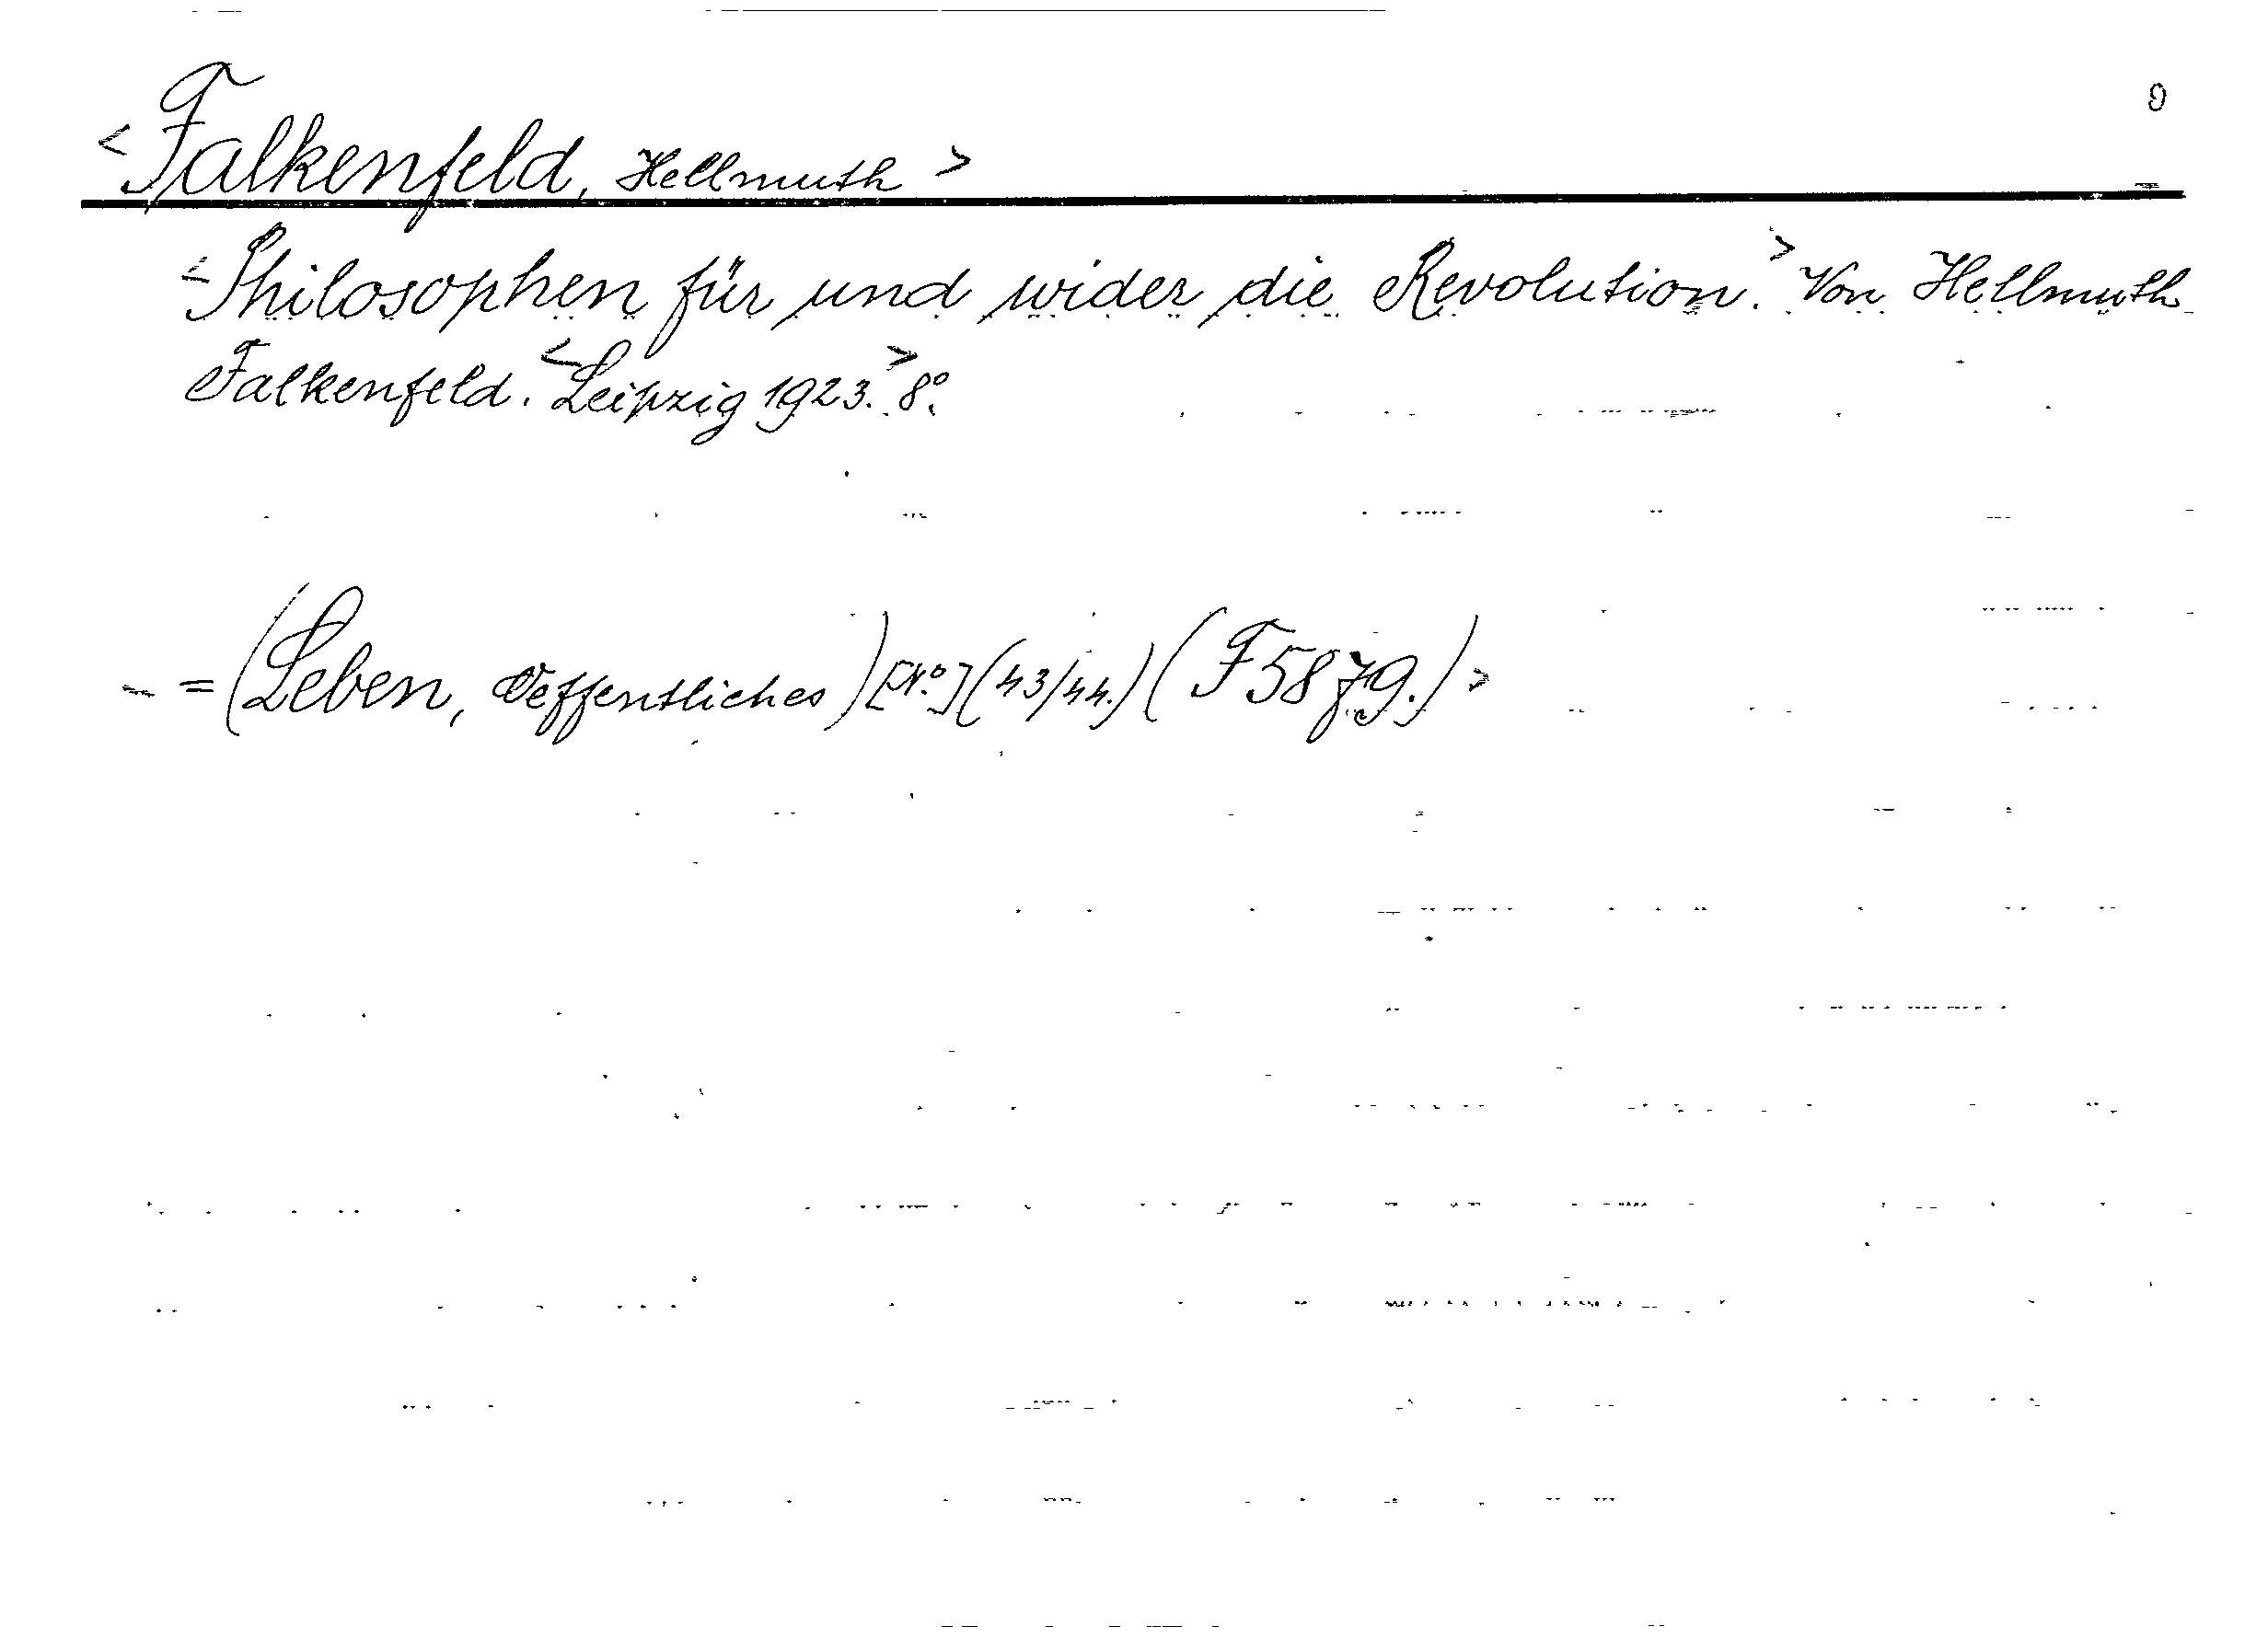 <Falkenfeld, Hellmuth>
<Philosophen für und wider die Revolution.> Von Hellmuth
Falkenfeld. <Leipzig 1923.> 8°.
= (Leben, Oeffentliches) [N°.] (43/44.) (F 5879.)>